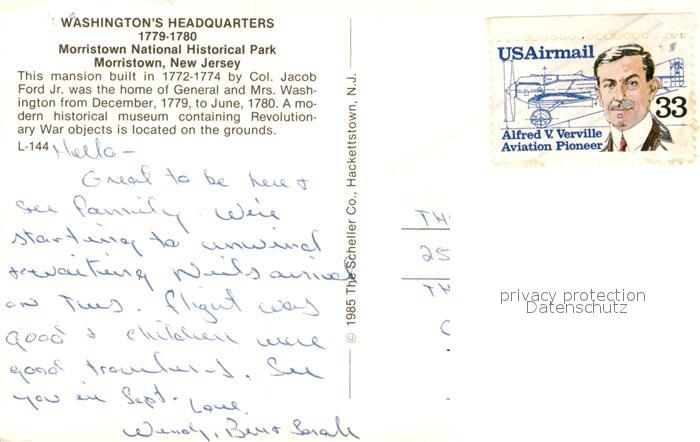 WASHINGTON'S HEADQUARTERS
1779-1780
Morristown National Historical Park
Morristown, New Jersey
This mansion built in 1772-1774 by Col. Jacob
Ford Jr. was the home of General and Mrs. Wash-
ington from December, 1779, to June, 1780. A mo-
dern historical museum containing Revolution-
ary War objects is located on the grounds.
L-144
Hello -
Great to be here &
see family. We're
starting to unwind
& waiting Neils arrival
on Tues. Flight was
good & children were
good travelers. See
you in Sept. Love,
Wendy, Ben & Sarah
© 1985 The Scheller Co., Hackettstown, N.J.
USAirmail
33
Alfred V. Verville
Aviation Pioneer
TH
25
TH
privacy protection
Datenschutz